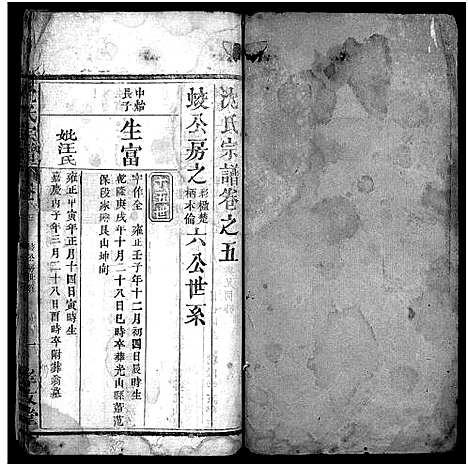 沈氏宗譜卷之五
蛟公房之彩楹楚栖木倫六公世系
十五世
中貽長子
生富
字作全 雍正壬子年十二月初四日辰時生
乾隆庚戌年十月二十八日巳時卒葬光山縣葛范
保段家 艮山坤向
妣汪氏
雍正甲寅年正月十四日寅時生
嘉慶丙子年三月二十八日酉時卒附葬翁墓